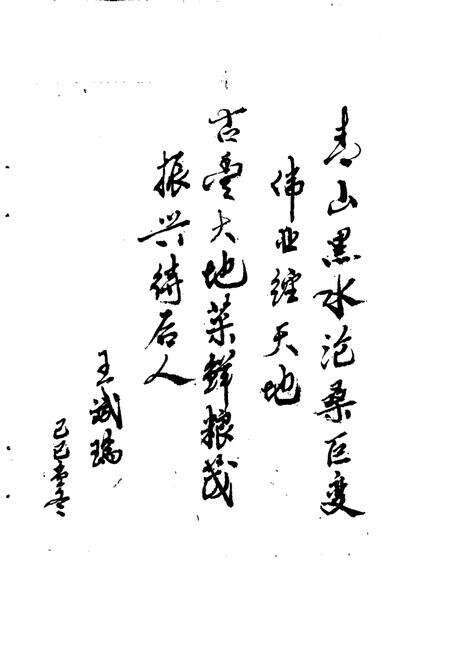 青山黑水沧桑巨变
伟业缠天地
古大地菜鲜粮茂
振兴待后人
王斌瑞
己巳孟冬